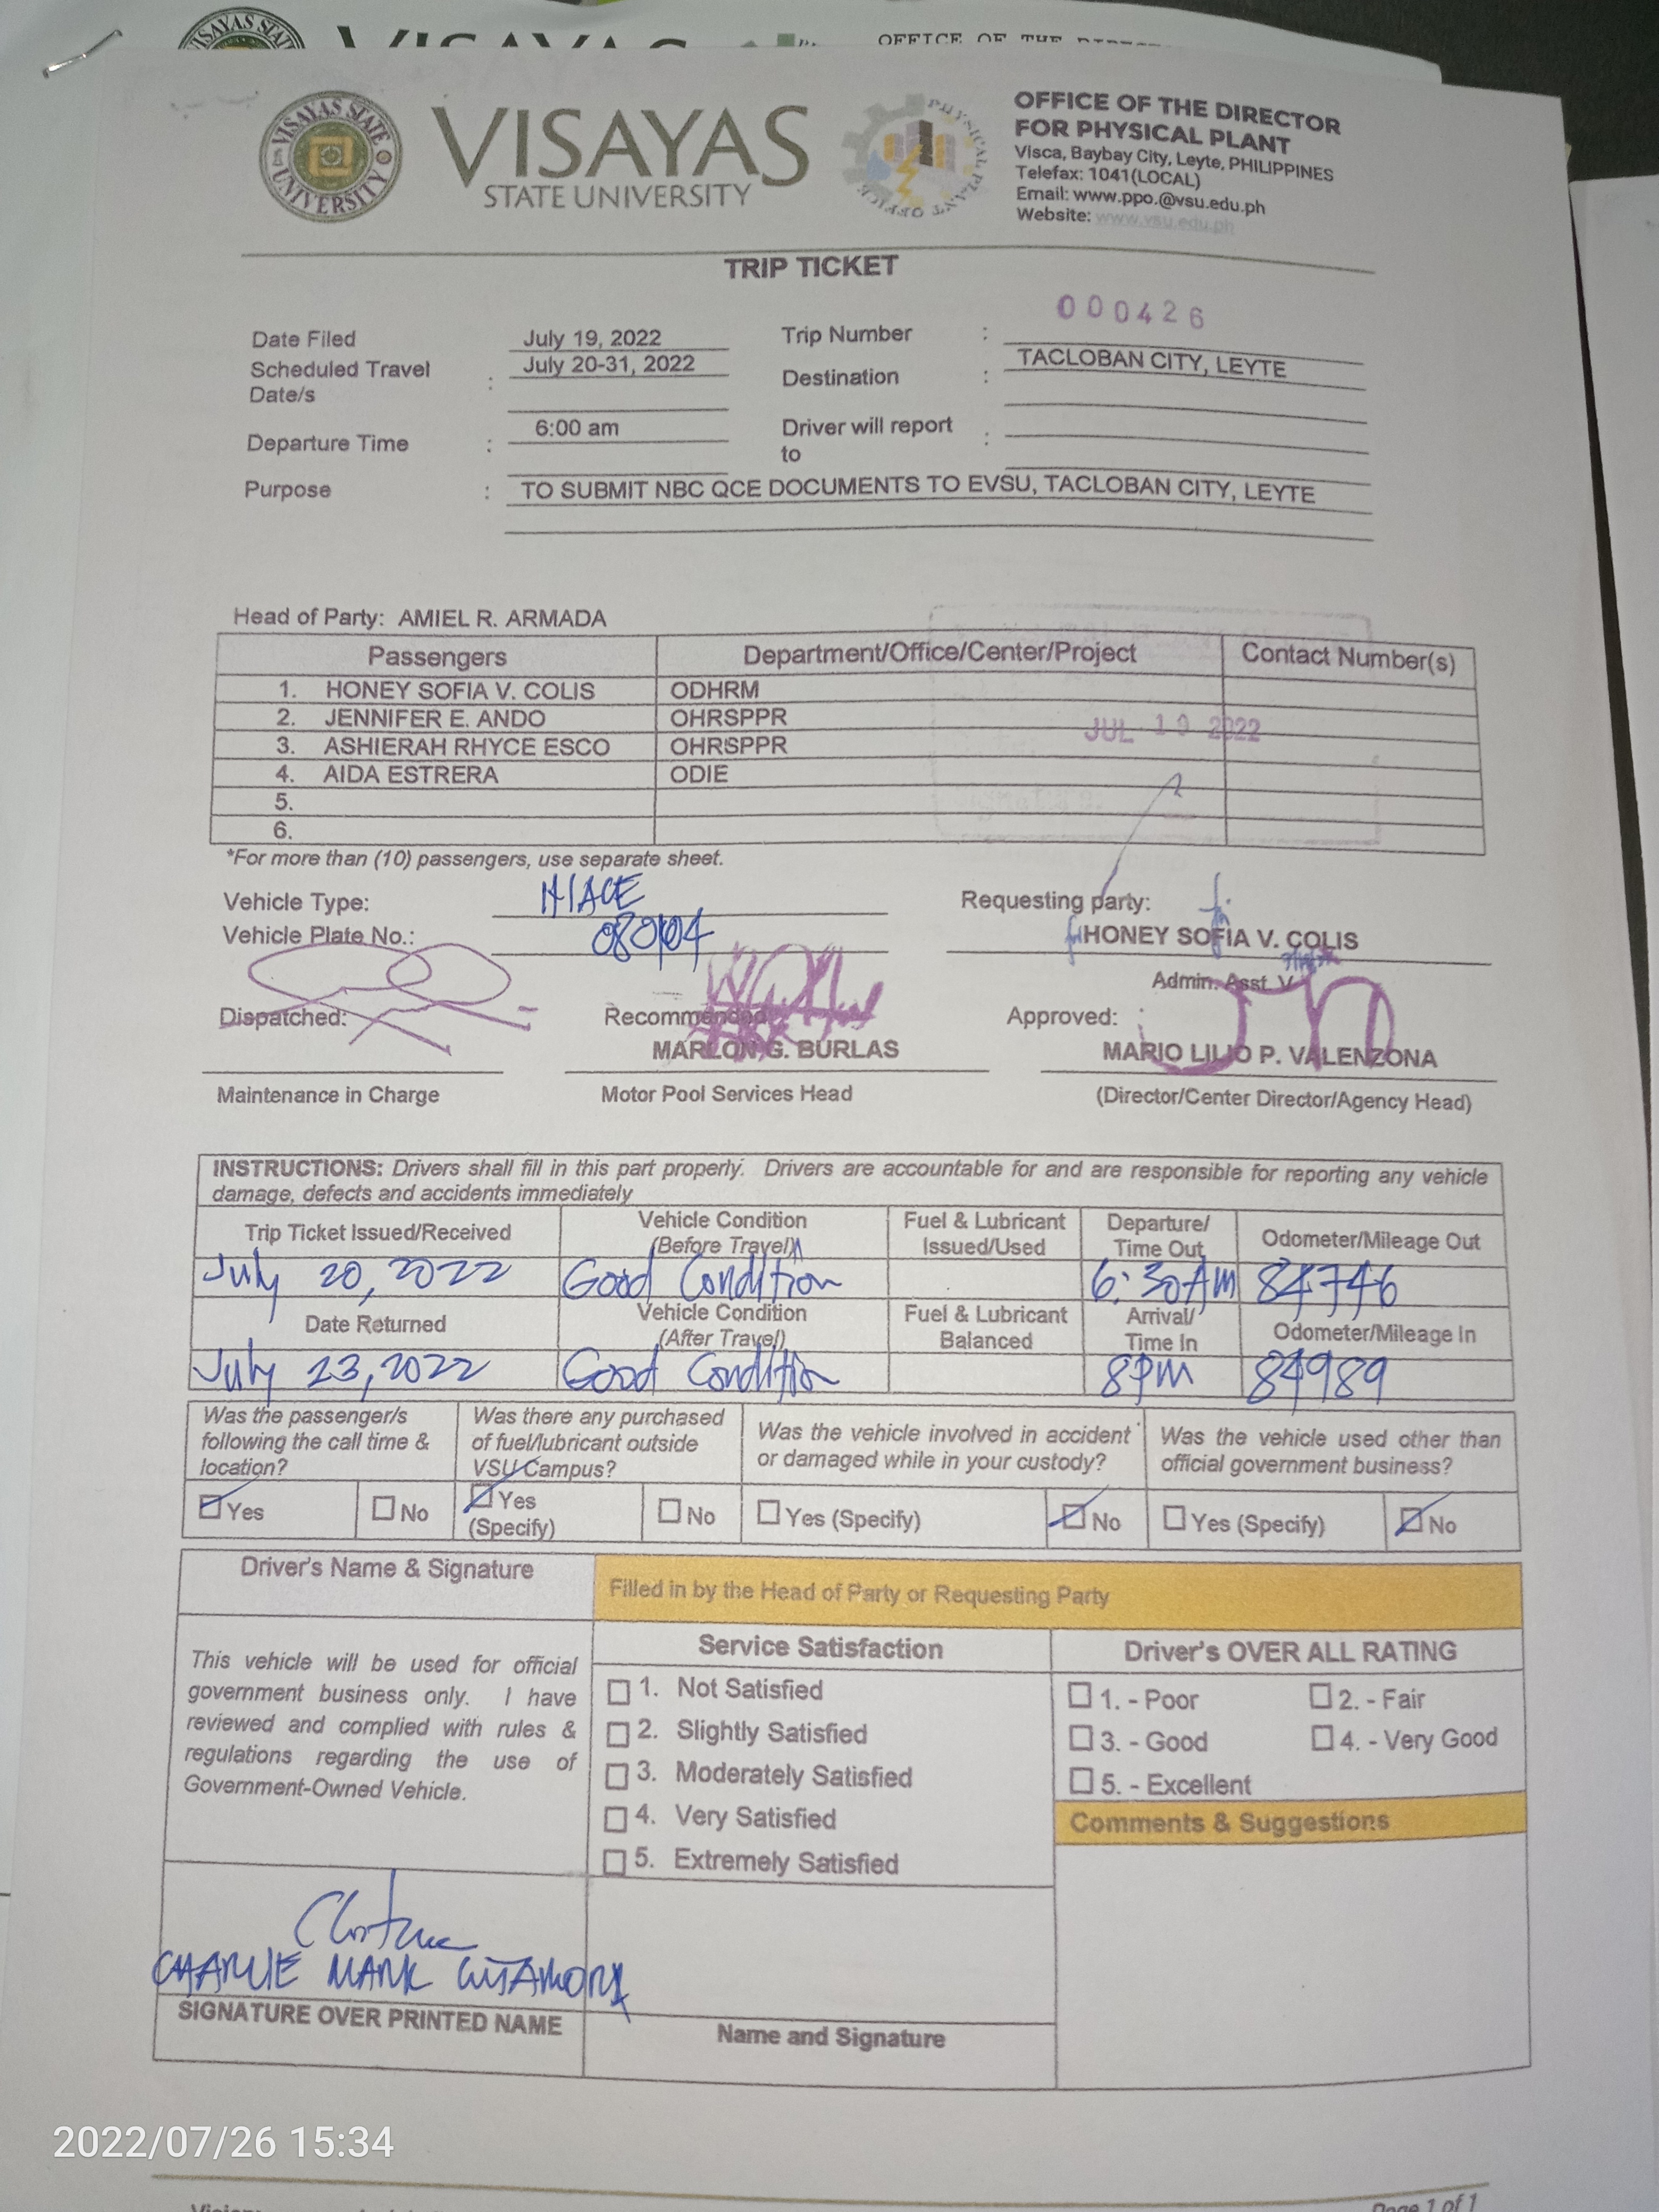 OFFICE OF THE
VISAYAS STATE UNIVERSITY
VISAYAS
STATE UNIVERSITY
PHYSICAL PLANT OFFICE
OFFICE OF THE DIRECTOR
FOR PHYSICAL PLANT
Visca, Baybay City, Leyte, PHILIPPINES
Telefax: 1041(LOCAL)
Email: www.ppo.@vsu.edu.ph
Website: www.vsu.edu.ph
TRIP TICKET
000426
Date Filed July 19, 2022 Trip Number :
Scheduled Travel Date/s : July 20-31, 2022 Destination : TACLOBAN CITY, LEYTE
Departure Time : 6:00 am Driver will report to :
Purpose : TO SUBMIT NBC QCE DOCUMENTS TO EVSU, TACLOBAN CITY, LEYTE
Head of Party: AMIEL R. ARMADA
Passengers Department/Office/Center/Project Contact Number(s)
1. HONEY SOFIA V. COLIS ODHRM
2. JENNIFER E. ANDO OHRSPPR
3. ASHIERAH RHYCE ESCO OHRSPPR
JUL 19 2022
4. AIDA ESTRERA ODIE
5.
6.
*For more than (10) passengers, use separate sheet.
Vehicle Type: HIACE Requesting party:
Vehicle Plate No.: HONEY SOFIA V. COLIS
Admin. Asst. V
Dispatched: Recommended: Approved:
MARLON G. BURLAS MARIO LILIO P. VALENZONA
Maintenance in Charge Motor Pool Services Head (Director/Center Director/Agency Head)
INSTRUCTIONS: Drivers shall fill in this part properly. Drivers are accountable for and are responsible for reporting any vehicle
damage, defects and accidents immediately
Trip Ticket Issued/Received Vehicle Condition (Before Travel) Fuel & Lubricant Issued/Used Departure/ Time Out Odometer/Mileage Out
July 20, 2022 Good Condition 6:30AM 84746
Date Returned Vehicle Condition (After Travel) Fuel & Lubricant Balanced Arrival/ Time In Odometer/Mileage In
July 23, 2022 Good Condition 8PM 84989
Was the passenger/s following the call time & location?
Was there any purchased of fuel/lubricant outside VSU Campus?
Was the vehicle involved in accident or damaged while in your custody?
Was the vehicle used other than official government business?
Yes No Yes (Specify) No Yes (Specify) No Yes (Specify) No
Driver's Name & Signature
Filled in by the Head of Party or Requesting Party
This vehicle will be used for official
government business only. I have
reviewed and complied with rules &
regulations regarding the use of
Government-Owned Vehicle.
Service Satisfaction
1. Not Satisfied
2. Slightly Satisfied
3. Moderately Satisfied
4. Very Satisfied
5. Extremely Satisfied
Driver's OVER ALL RATING
1. - Poor 2. - Fair
3. - Good 4. - Very Good
5. - Excellent
Comments & Suggestions
CHARLIE MARK
SIGNATURE OVER PRINTED NAME
Name and Signature
2022/07/26 15:34
Page 1 of 1